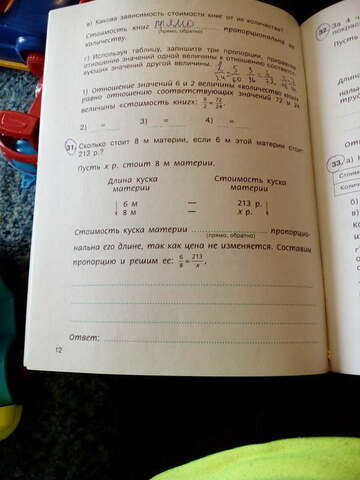 в) Какова зависимость стоимости книг от их количества?
Стоимость книг прямо пропорциональна их
(прямо, обратно)
количеству.
г) Используя таблицу, запишите три пропорции, приравняв
отношение значений одной величины к отношению соответст-
вующих значений другой величины.
1) Отношение значений 6 и 2 величины «количество книг»
равно отношению соответствующих значений 72 и 24
величины «стоимость книг»: 6/2 = 72/24.
2) — = 3) — = 4) — =
31. Сколько стоит 8 м материи, если 6 м этой материи стоят
213 р.?
Пусть x р. стоит 8 м материи.
Длина куска Стоимость куска
материи материи
6 м — 213 р.
8 м — x р.
Стоимость куска материи ........ пропорцио-
(прямо, обратно)
нальна его длине, так как цена не изменяется. Составим
пропорцию и решим ее: 6/8 = 213/x.
Ответ:
12
32. За 4
Пусть
Длина
33. а)
Стоим
Колич
б)